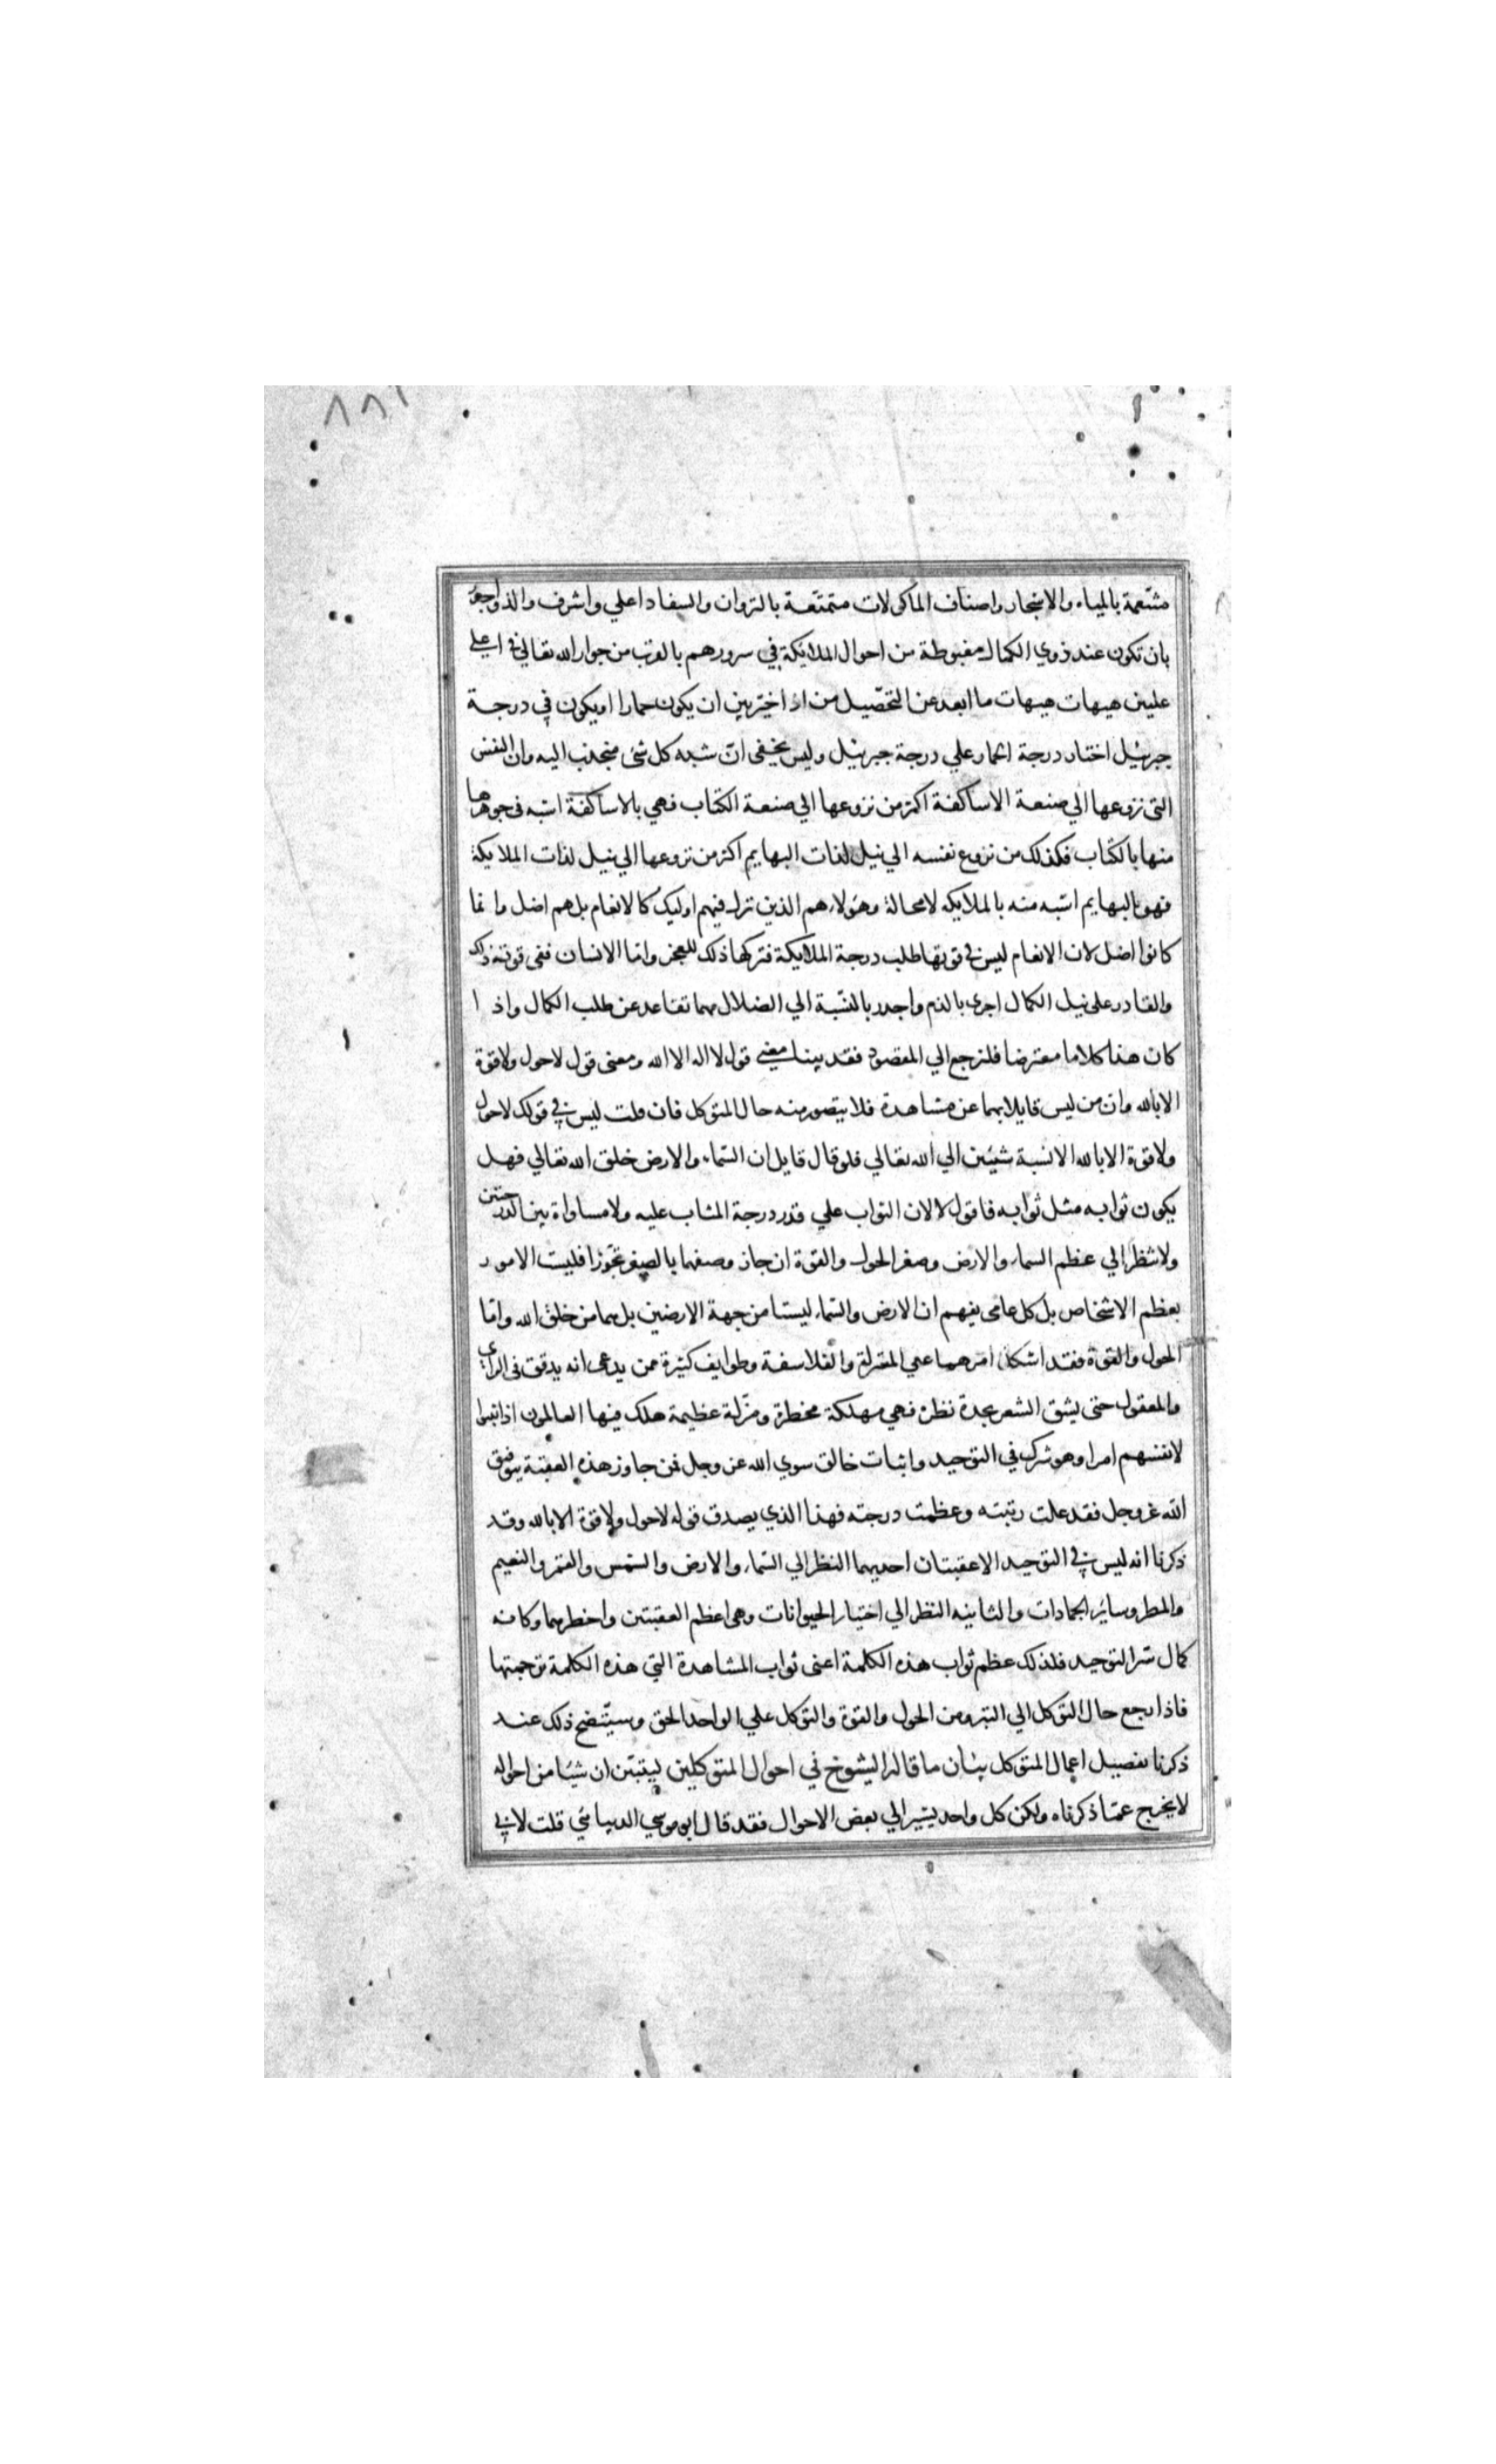 متنعمة بالمياه والاشجار واصناف الماكولات متمتعة بالنزوان والسفاد اعلي واشرف والذ واجدر
بان تكون عند ذوي الكمال مغبوطة من احوال الملايكة في سرورهم بالقرب من جوار الله تعالي في اعلي
عليين هيهات هيهات ما ابعد عن التحصيل من اذا خير بين ان يكون حمارا او يكون في درجة
جبرئيل اختار درجة الحمار علي درجة جبرئيل وليس يخفى ان شبه كل شئ منجذب اليه وان النفس
التى نزوعها الي صنعة الاساكفة اكثر من نزوعها الي صنعة الكتاب فهي بالاساكفة اشبه في جوهرها
منها بالكتاب فكذلك من نزوع نفسه الي نيل لذات البهايم اكثر من نزوعها الي نيل لذات الملايكة
فهو بالبهايم اشبه منه بالملايكه لا محالة وهولاء هم الذين نزل فيهم اوليك كالانعام بل هم اضل وانما
كانوا اضل لان الانعام ليس في قوتها طلب درجة الملايكة فتركها ذلك للعجز واما الانسان ففى قوته ذلك
والقادر على نيل الكمال اجرى بالذم واجدر بالنسبة الي الضلال مهما تقاعد عن طلب الكمال واذا
كان هذا كلاما معترضا فلنرجع الي المقصود فقد بينا معنى قول لا اله الا الله ومعنى قول لا حول ولا قوة
الا بالله وان من ليس قايلا بهما عن مشاهدة فلا يتصور منه حال المتوكل فان قلت ليس في قولك لا حول
ولا قوة الا بالله الا نسبة شيئين الي الله تعالي فلو قال قايل ان السماء والارض خلق الله تعالي فهل
يكون ثوابه مثل ثوابه فاقول لا لان الثواب علي قدر درجة المثاب عليه ولا مساواة بين الدرجتين
ولا تنظر الي عظم السماء والارض وصغر الحول والقوة ان جاز وصفهما بالصغر تجوزا فليست الامور
بعظم الاشخاص بل كل عامى يفهم ان الارض والسماء ليستا من جهة الارضين بل هما من خلق الله واما
الحول والقوة فقد اشكل امرهما علي المعتزلة والفلاسفة وطوايف كثيرة ممن يدعي انه يدقق في الراي
والمعقول حتى يشق الشعر بحدة نظره فهي مهلكة مخطرة ومزلة عظيمة هلك فيها العالمون اذ اثبتوا
لانفسهم امرا وهو شرك في التوحيد واثبات خالق سوي الله عز وجل فمن جاوز هذه العقبة بتوفيق
الله عز وجل فقد علت رتبته وعظمت درجته فهذا الذي يصدق قوله لا حول ولا قوة الا بالله وقد
ذكرنا انه ليس في التوحيد الا عقبتان احديهما النظر الي السماء والارض والشمس والقمر والنعيم
والمطر وساير الجمادات والثانيه النظر الي اختيار الحيوانات وهي اعظم العقبتين واخطرهما وكانه
كمال سر التوحيد فلذلك عظم ثواب هذه الكلمة اعنى ثواب المشاهدة التي هذه الكلمة ترجمتها
فاذا رجع حال التوكل الي التبرو من الحول والقوة والتوكل علي الواحد الحق وسيتضح ذلك عند
ذكرنا تفصيل اعمال المتوكل بيان ما قاله الشيوخ في احوال المتوكلين ليتبين ان شيئا من احواله
لا يخرج عما ذكرناه ولكن كل واحد يشير الي بعض الاحوال فقد قال ابو موسي الديبائي قلت لابي